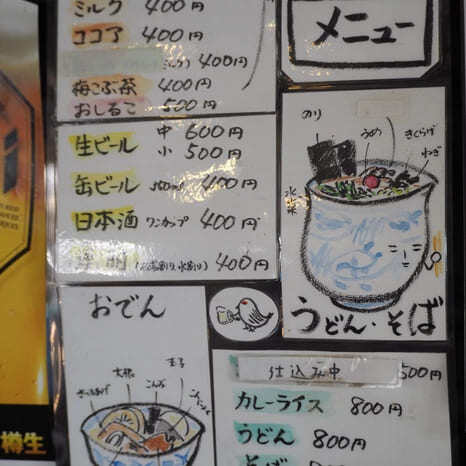 ミルク 400円
ココア 400円
400円
梅こぶ茶 400円
おしるこ 500円
生ビール 中 600円
小 500円
缶ビール 400円
日本酒 ワンカップ 400円
(お湯割り、水割り) 400円
メニュー
のり
うめ
きくらげ
ねぎ
水菜
うどん・そば
おでん
玉子
大根
こんぶ
さつまあげ
仕込み中 500円
カレーライス 800円
うどん 800円
そば
樽生